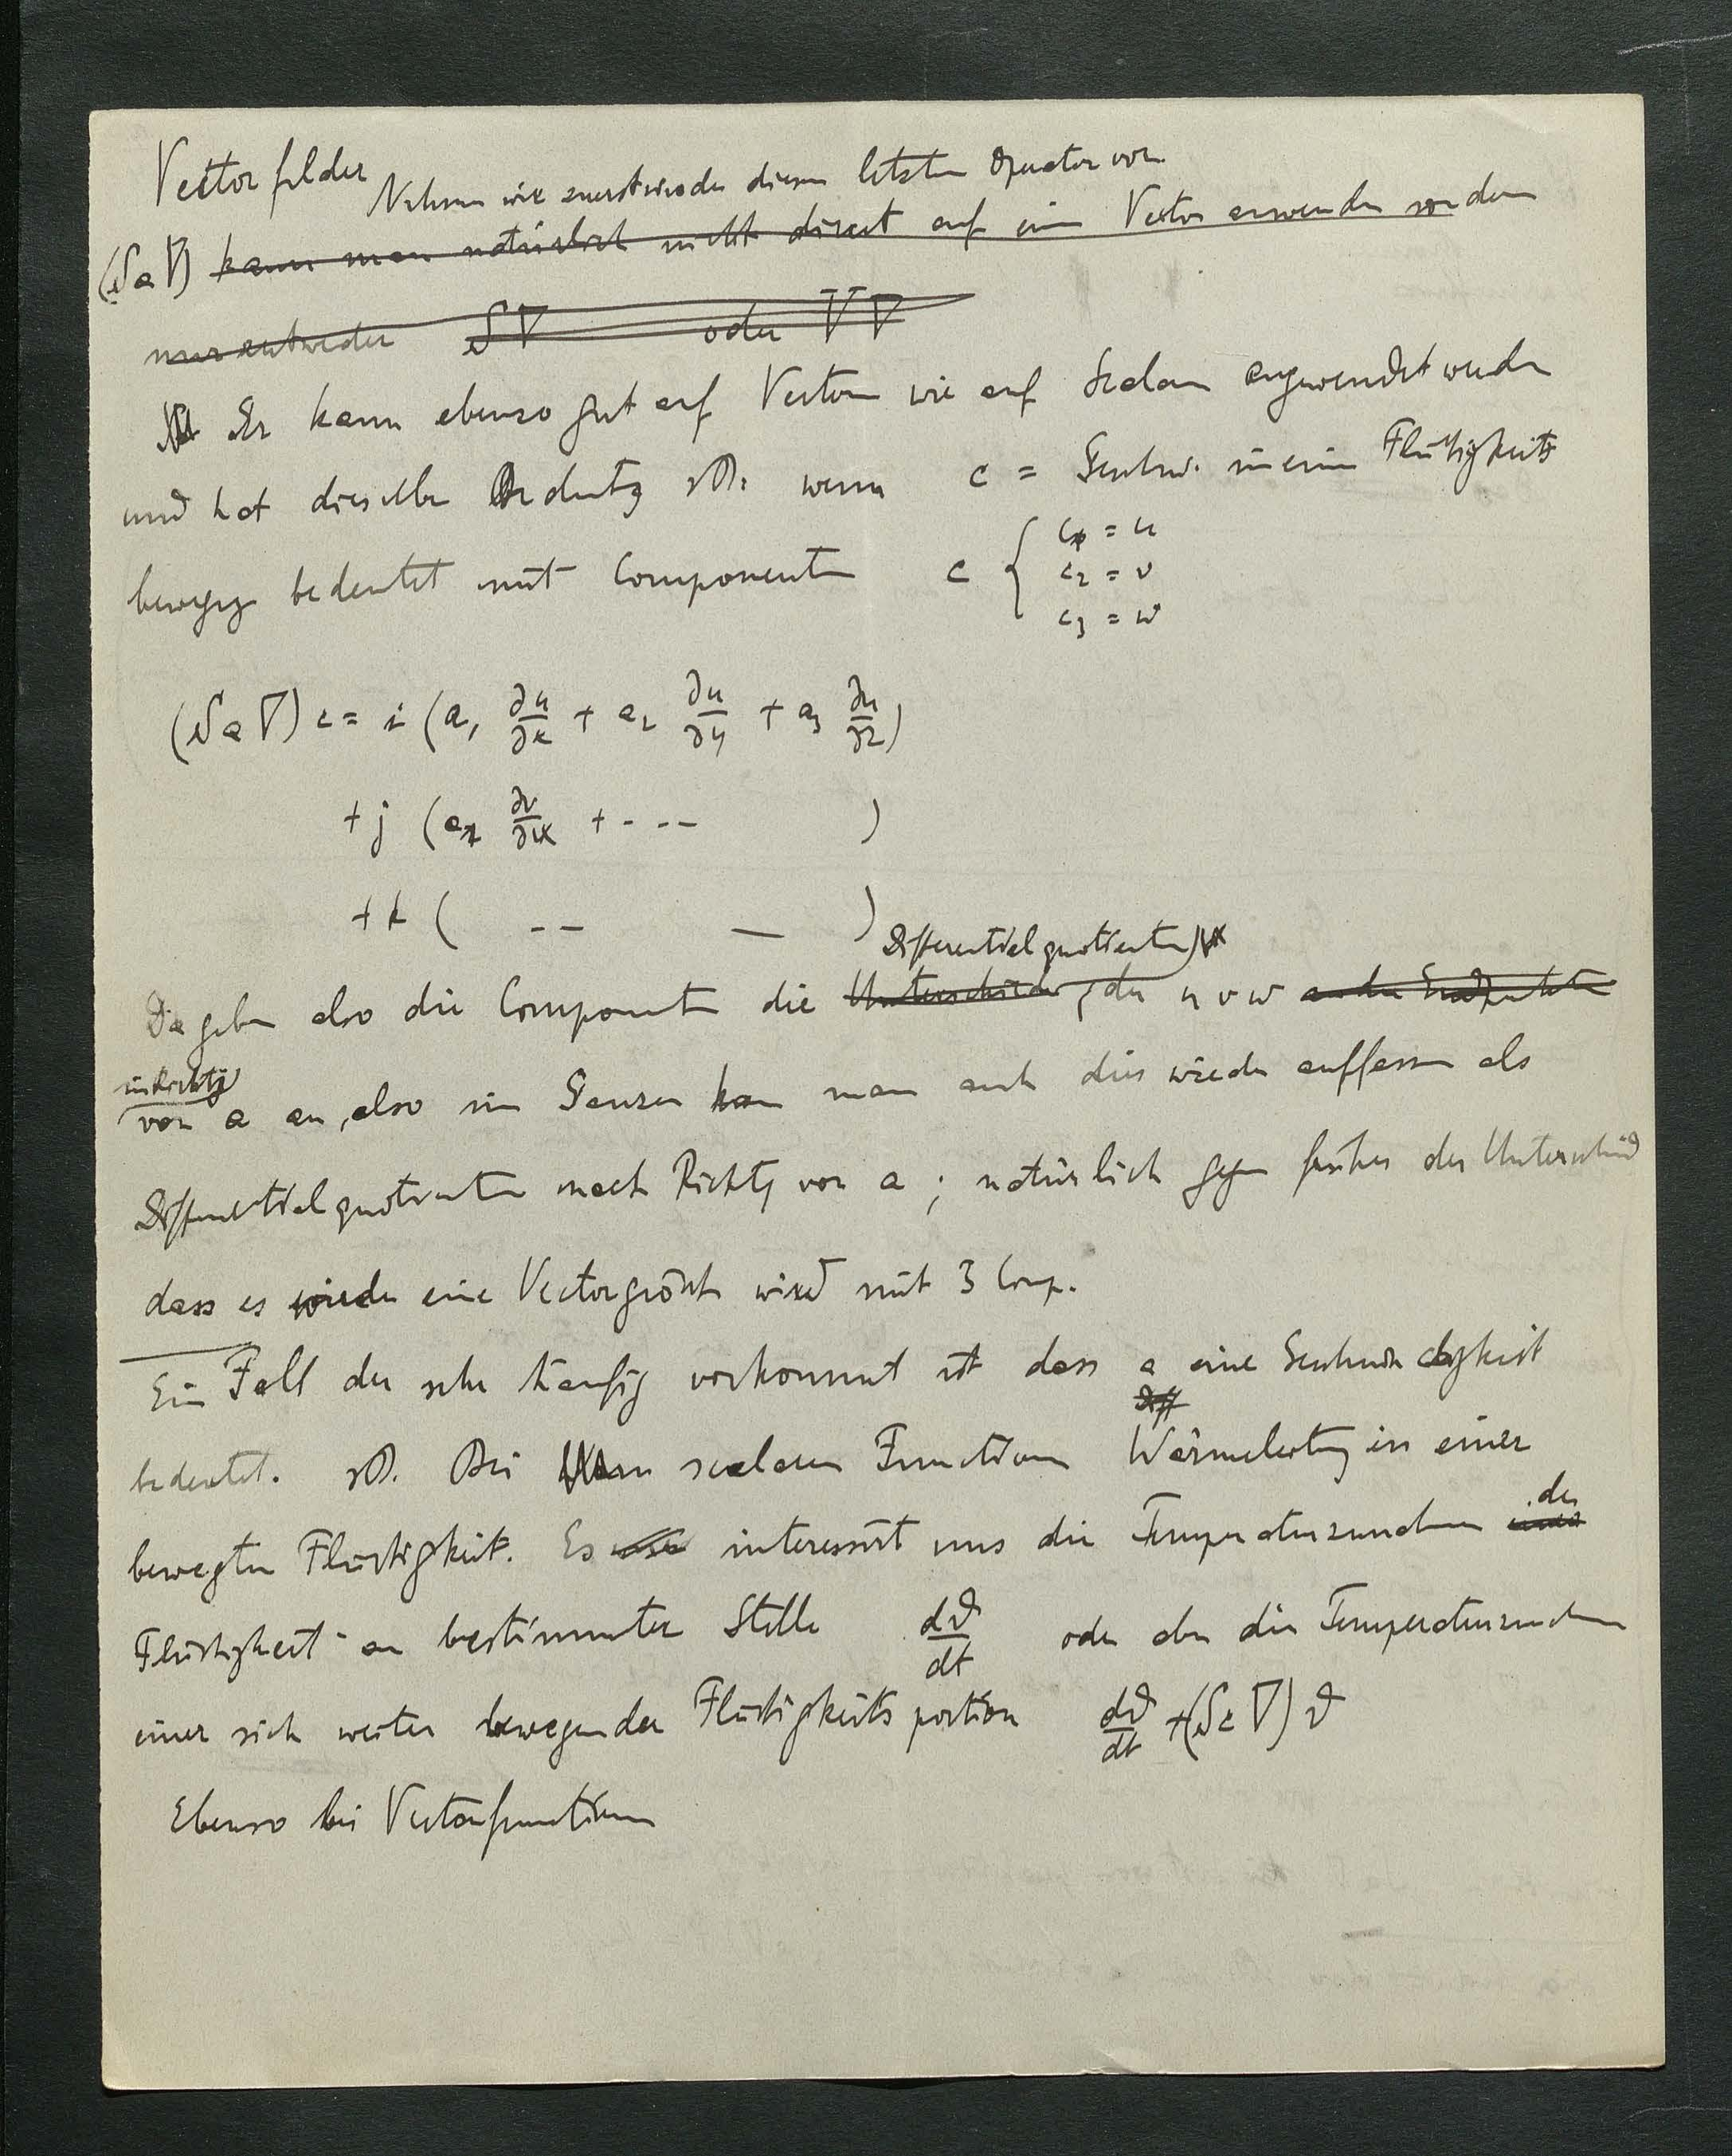 Vectorfelder Nehmen wir zuerst wieder diesen letzten Operator vor.
(Sa∇) kann man natürlich nicht direct auf einen Vector anwenden sondern
nur entweder S∇ oder V∇
Er kann ebenso gut auf Vectoren wie auf Scalare angewendet werden
und hat dieselbe Bedeutg zB: wenn c = Geschw. in einer Flüssigkeits
bewegg bedeutet mit Componenten c { c₁ = u
c₂ = v
c₃ = w
(Sa∇)c = i (a₁ ∂u/∂x + a₂ ∂u/∂y + a₃ ∂u/∂z)
+ j (a₁ ∂v/∂x + --- )
+ k ( -- — )
Differentialquotienten
Da geben also die Componenten die Unterschiede der u v w an den Endpunkten
in Richtg
von a an, also im Ganzen kann man auch dies wieder auffassen als
Differentialquotienten nach Richtg von a; natürlich gegen früher der Unterschied
dass es wieder eine Vectorgrösse wird mit 3 Comp.
Ein Fall der sehr häufig vorkommt ist dass a eine Geschwindigkeit
Diff
bedeutet. zB. Bei scalaren Functionen Wärmeleitung in einer
der
bewegten Flüssigkeit. Es interessirt uns die Temperaturzunahme einer
Flüssigkeit an bestimmter Stelle dϑ/dt oder aber die Temperaturzunahme
einer sich weiter bewegenden Flüssigkeitsportion dϑ/dt + (Sc∇)ϑ
Ebenso bei Vectorfunctionen